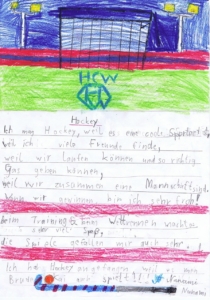 HCW
Hockey
Ich mag Hockey, weil es eine coole Sportart ist,
weil ich viele Freunde finde,
weil wir laufen können und so richtig
Gas geben können,
weil wir zusammen eine Mannschaft sind.
Wenn wir gewinnen bin ich sehr froh!
beim Training
aber viel Spaß,
die Spiele gefallen mir auch sehr!
Ich hab Hockey angefangen weil mein
Bruder spielt!!!